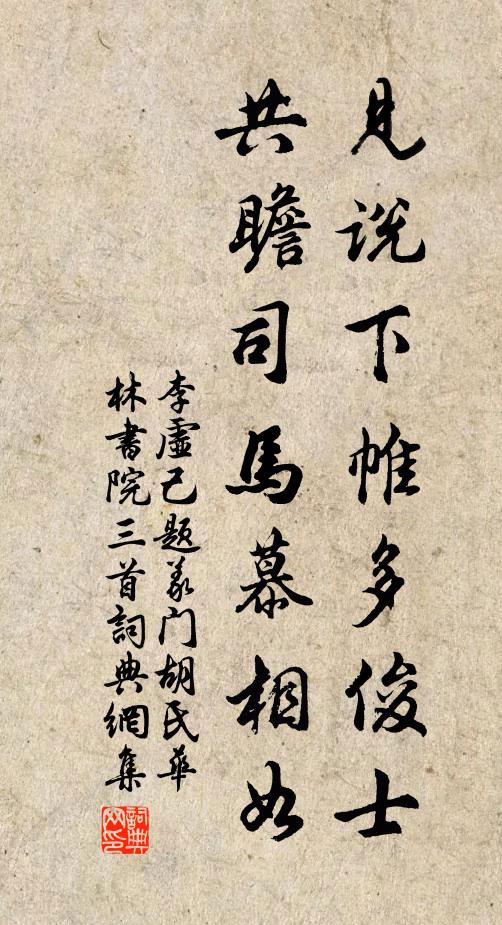 見说下帷多俊士
共瞻司馬慕相如
李虛己题義门胡氏華
林書院三首詞典網集
詞典
网印